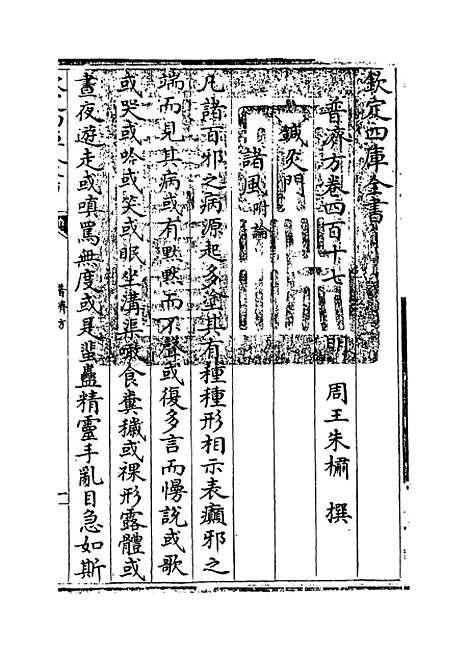 欽定四庫全書
普濟方卷四百十七 明 周王朱橚 撰
鍼灸門
諸風附論
凡諸百邪之病源起多途其有種種形相示表癲邪之
端而見其病或有默默而不聲或復多言而慢說或歌
或哭或吟或笑或眠坐溝渠噉食糞穢或裸形露體或
晝夜遊走或嗔罵無度或是蜚蠱精靈手亂目急如斯
普濟方